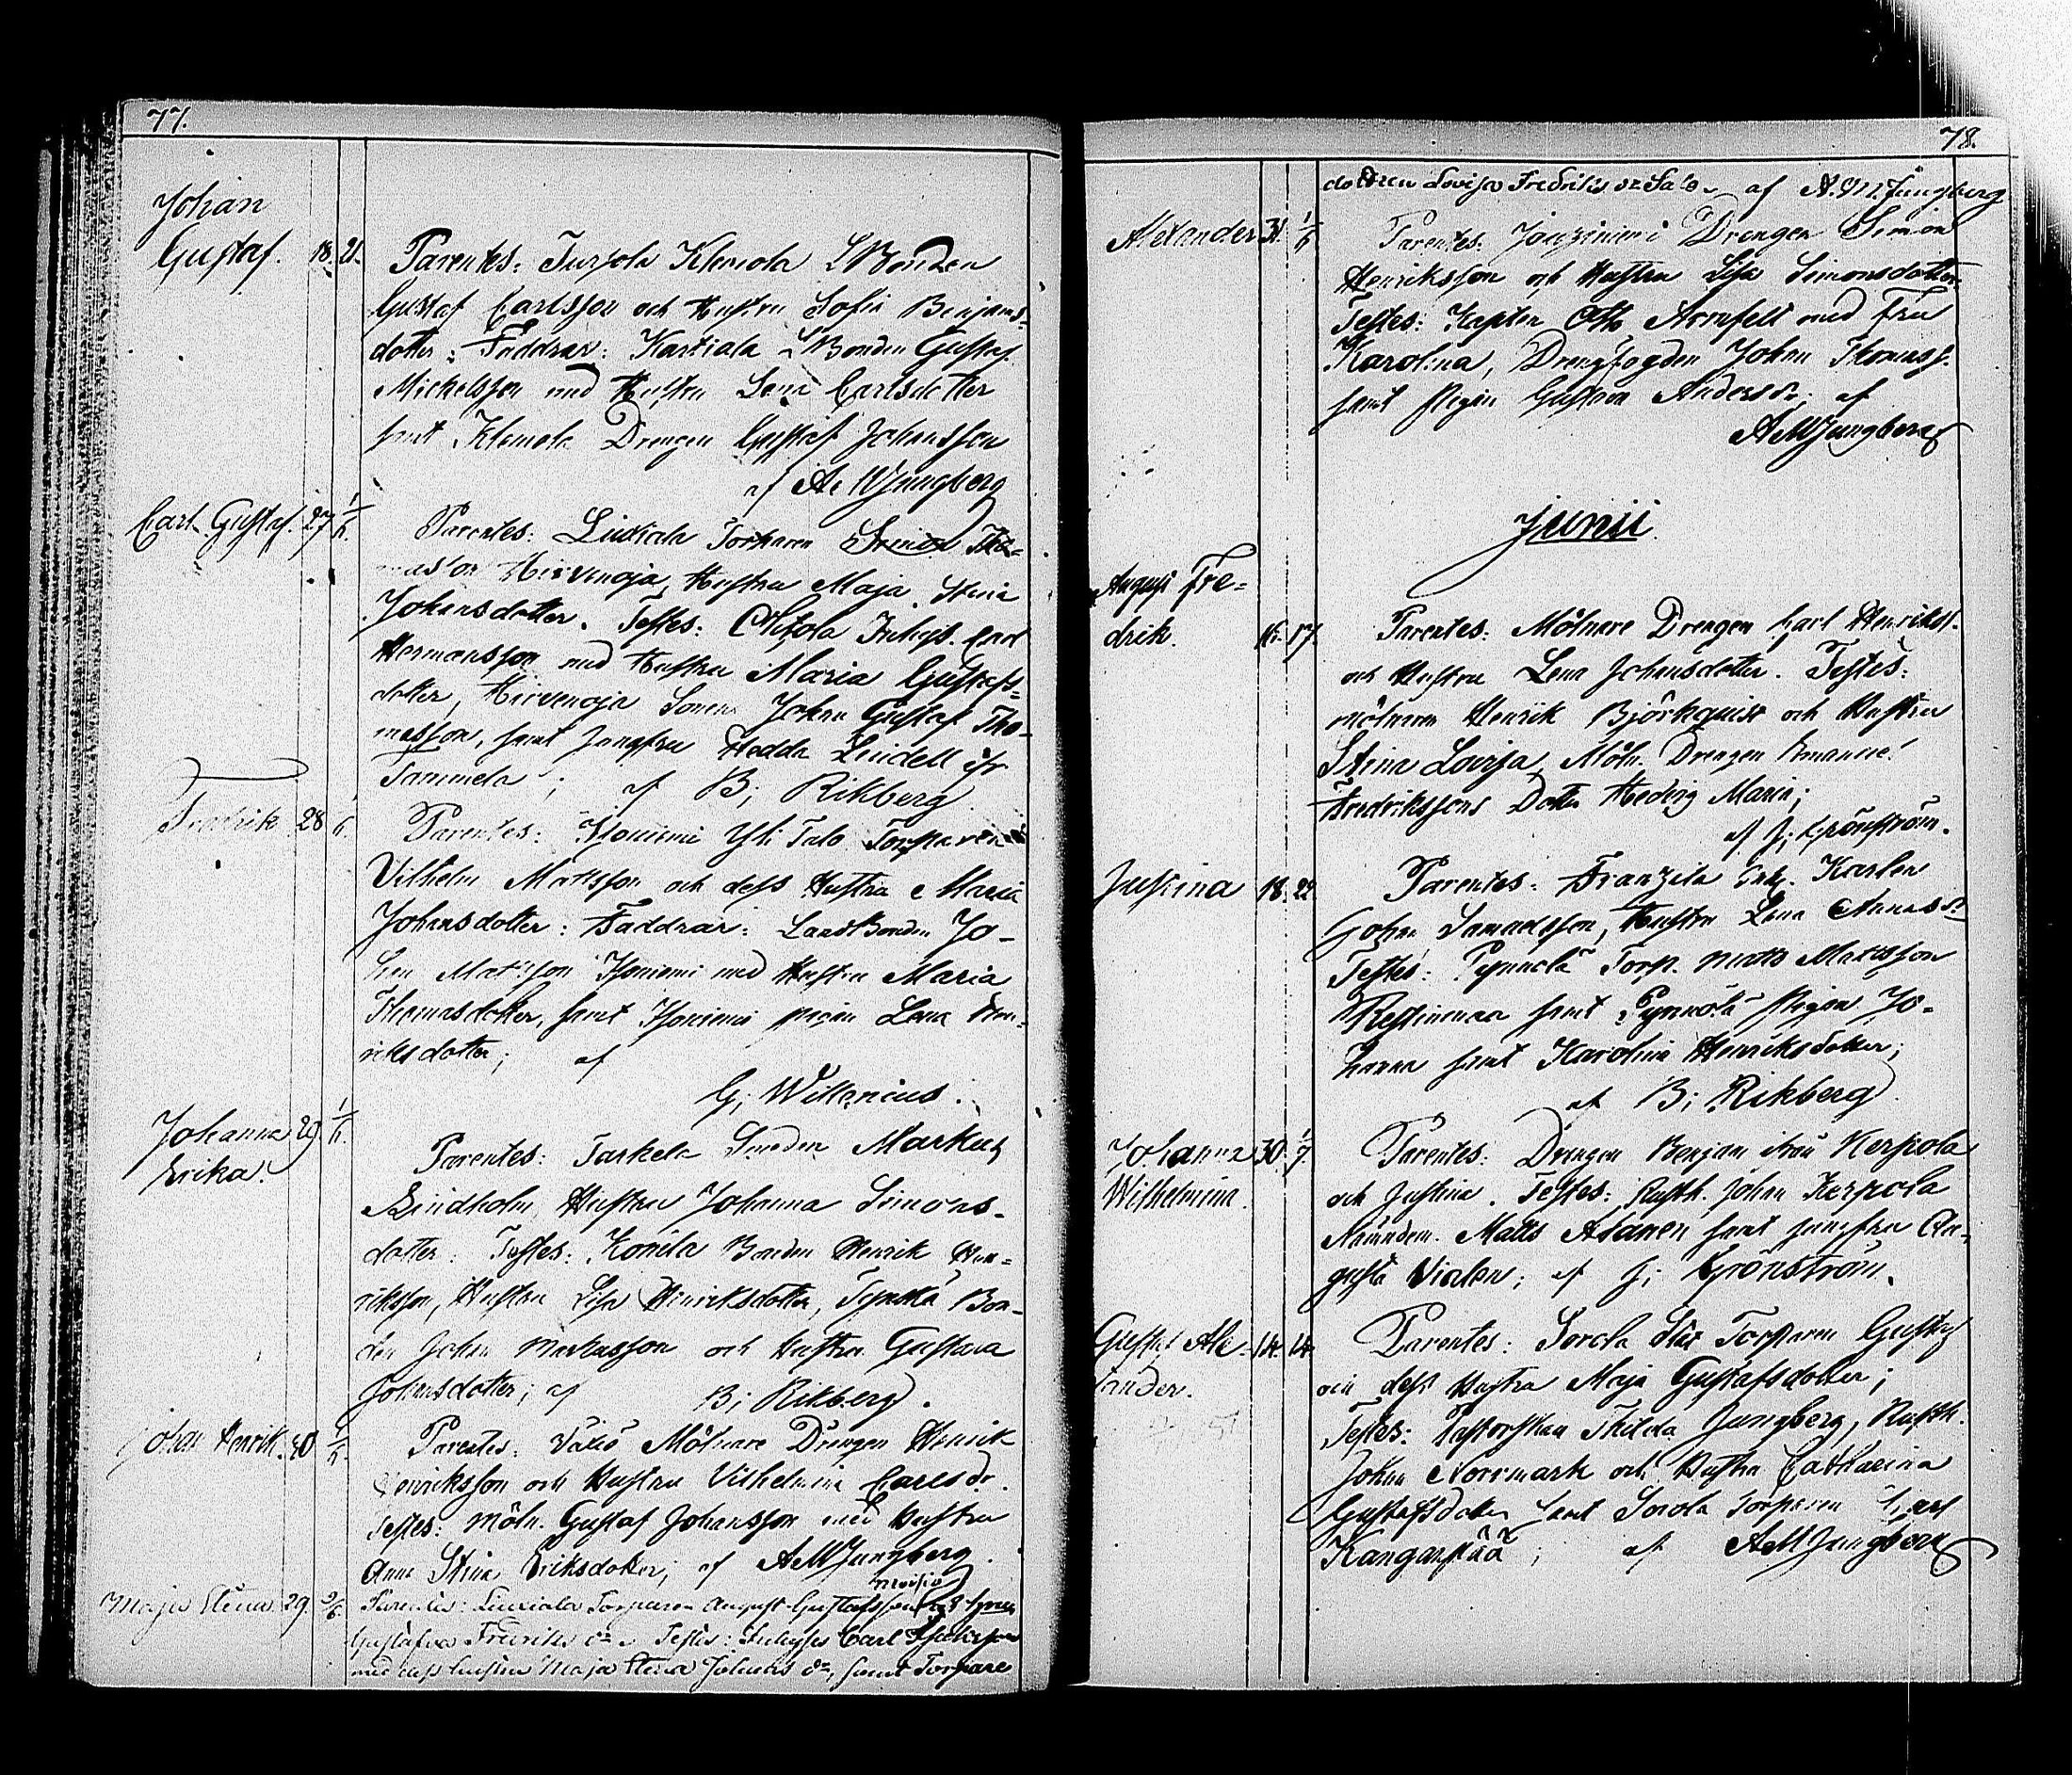 77.
Johan
Gustaf. 18. 21. Parentes: Turpola Klemola LBonden
Gustaf Carlsson och Hustru Sofia Benjams-
dotter; Faddrar: Kartiala LBonden Gustaf
Mickelsson med Hustru Lena Carlsdotter
samt Klemola Drengen Gustaf Johansson
af A. W. Jungberg
Carl Gustaf. 27. 1/6. Parentes: Torparen Tho-
masson Hirvenoja, Hustru Maja Stina
Johansdotter. Testes: Inhys. Carl
Hermansson med Hustru Maria Gustafs-
dotter, Hirvenoja Sonen Johan Gustaf Tho-
masson, samt Jungfru Hedda Lindell ifr
Tammela; af B; Rikberg
Fredrik 28 1/6. Parentes: Isoniemi Yli Talo Torparen
Vilhelm Mattsson och dess Hustru Maria
Johansdotter: Faddrar: LandtBonden Jo-
han Mattsson Isoniemi med Hustru Maria
Thomasdotter, samt Isoniemi pigan Lena Hen-
riksdotter; af
G; Willenius.
Johanna 29. 1/6.
Erika. Parentes: Tarkela Smeden Markus
Lindholm, Hustru Johanna Simons-
dotter: Testes: Konila Bonden Henrik Hen-
riksson, Hustru Lisa Henriksdotter, Bon-
den Johan Markusson och Hustru Gustava
Johansdotter; af B; Rikberg.
Johan Henrik. 30 1/6. Parentes: Mölnare Drengen Henrik
Henriksson och Hustru Vilhelmina Carlsdr.
Testes: Möln. Gustaf Johansson med Hustru
Anna Stina Eriksdotter; af AWJungberg.
Maja Stina. 29. 2/6. Parentes: Torparen August Gustafsson
Gustafva Fredriks dr. Testes: Inhyses Carl
med dess hustru Maja Stina Johans dr, samt Torpare
78.
dottren Lovisa Fredriks dr Salo af A. W. Jungberg
Alexander 31. 1/6 Parentes: Drengen Simon
Henriksson och Hustru Lisa Simonsdotter
Testes: Kapten Otto Armfelt med Fru
Karolina, Drengfogden Johan Thomass.
samt Pigan Gustava Andersdr; af
AWJungberg
Junii.
August Fre-
drik. 16. 17. Parentes: Mölnare Drengen Carl Henrikss.
och Hustru Lena Johansdotter. Testes:
mölnaren Henrik Björkqvist och Hustru
Stina Lovisa, Möln. Drengen Emanuel
Fredrikssons Dotter Hedvig Maria;
af J; Grönström.
Justina 18. 22. Parentes: Franzila Inh. Karlen
Johan Samuelsson, Hustru Lena
Testes: Torp. Matts Mattsson
samt Pigan Jo-
hanna samt Karolina Henriksdotter;
af B; Rikberg
Johanna 30. 1/7.
Wilhelmina. Parentes: Drengen Benjam ifrån Kerpola
och Justina. Testes: Rusth. Johan Kerpola
Nämndem. Matts Alanen samt jungfru Au-
gusta Virlen; af J; Grönström.
Gustaf Alex- 14. 14.
ander. Parentes: Sorola Torparen Gustaf
och dess Hustru Maja Gustafsdotter;
Testes: Pastorskan Thilda Jungberg, Rusth.
Johan Norrmark och Hustru Catharina
Gustafsdotter samt Sorola Torparen Carl
Kangaspää; af AWJungberg